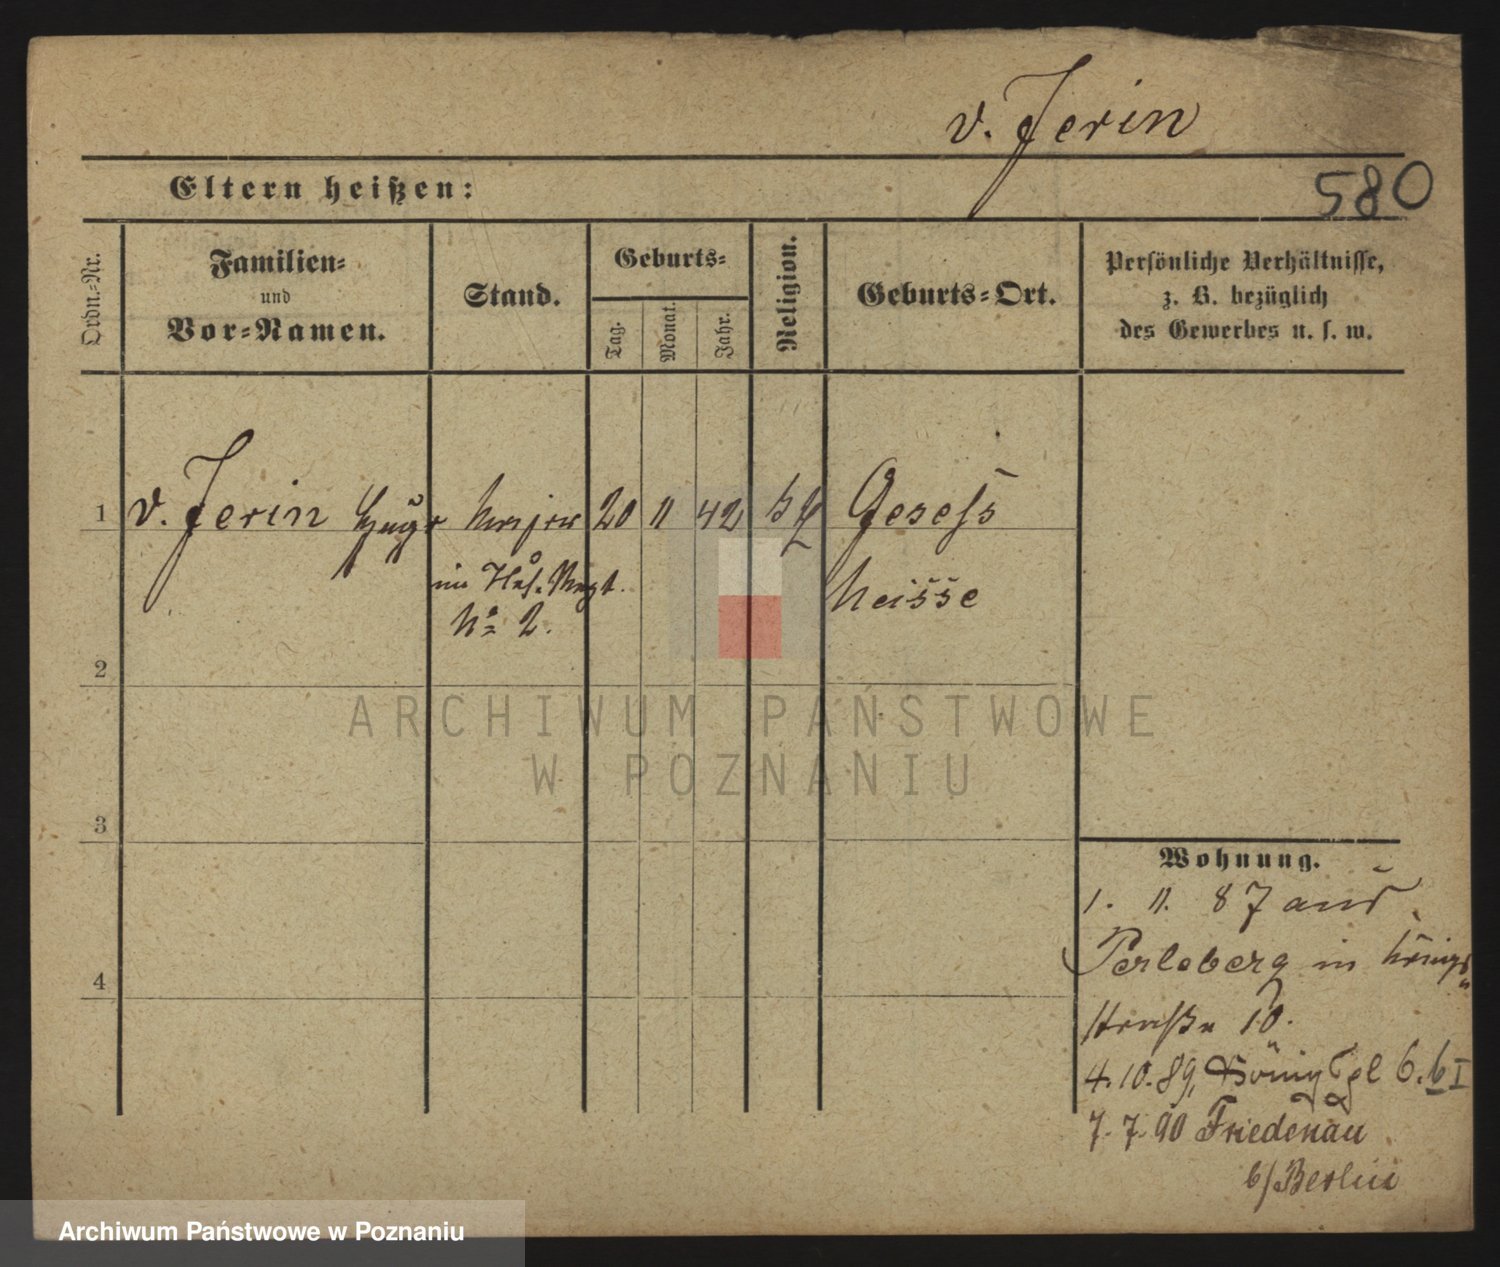 v. Jerin
580
Eltern heißen:
Ordn.-Nr.
Familien-
und
Vor-Namen.
Stand.
Geburts-
Tag.
Monat.
Jahr.
Religion.
Geburts-Ort.
Persönliche Verhältnisse,
z. B. bezüglich
des Gewerbes u. s. w.
1 v. Jerin Hugo Major 20 11 42 Geseſs
im Hus. Regt. Neisse
No 2.
2
3
4
Wohnung.
1. 11. 87 aus
Perleberg in Königs
straße 10.
4.10.89, Königspl 6. b I
7.7.90 Friedenau
b/Berlin
ARCHIWUM PAŃSTWOWE
W POZNANIU
Archiwum Państwowe w Poznaniu